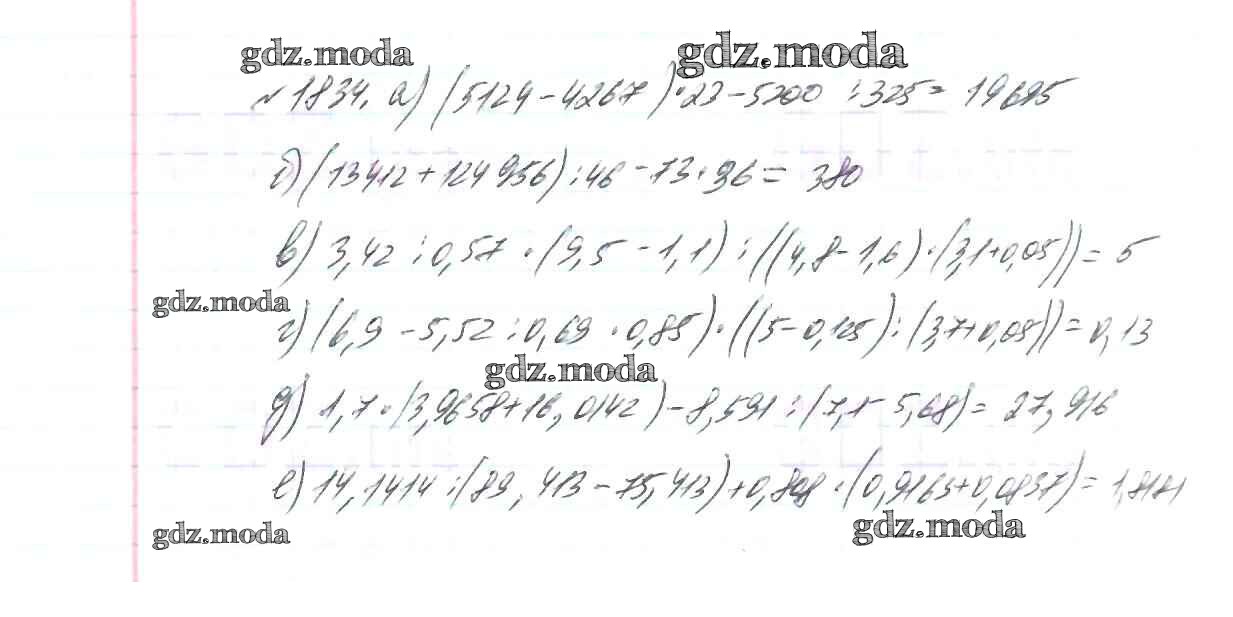 gdz.moda gdz.moda
№ 1834. а) (5124 - 4267) · 23 - 5200 : 325 = 19695
б) (13412 + 124956) : 46 - 73 · 36 = 380
в) 3,42 : 0,57 · (9,5 - 1,1) : ((4,8 - 1,6) · (3,1 + 0,05)) = 5
gdz.moda
г) (6,9 - 5,52 : 0,69 · 0,85) · ((5 - 0,125) : (3,7 + 0,05)) = 0,13
gdz.moda
д) 1,7 · (3,9658 + 16,0142) - 8,591 : (7,1 - 5,68) = 27,916
е) 14,1414 : (89,413 - 75,413) + 0,808 · (0,9163 + 0,0837) = 1,8181
gdz.moda gdz.moda